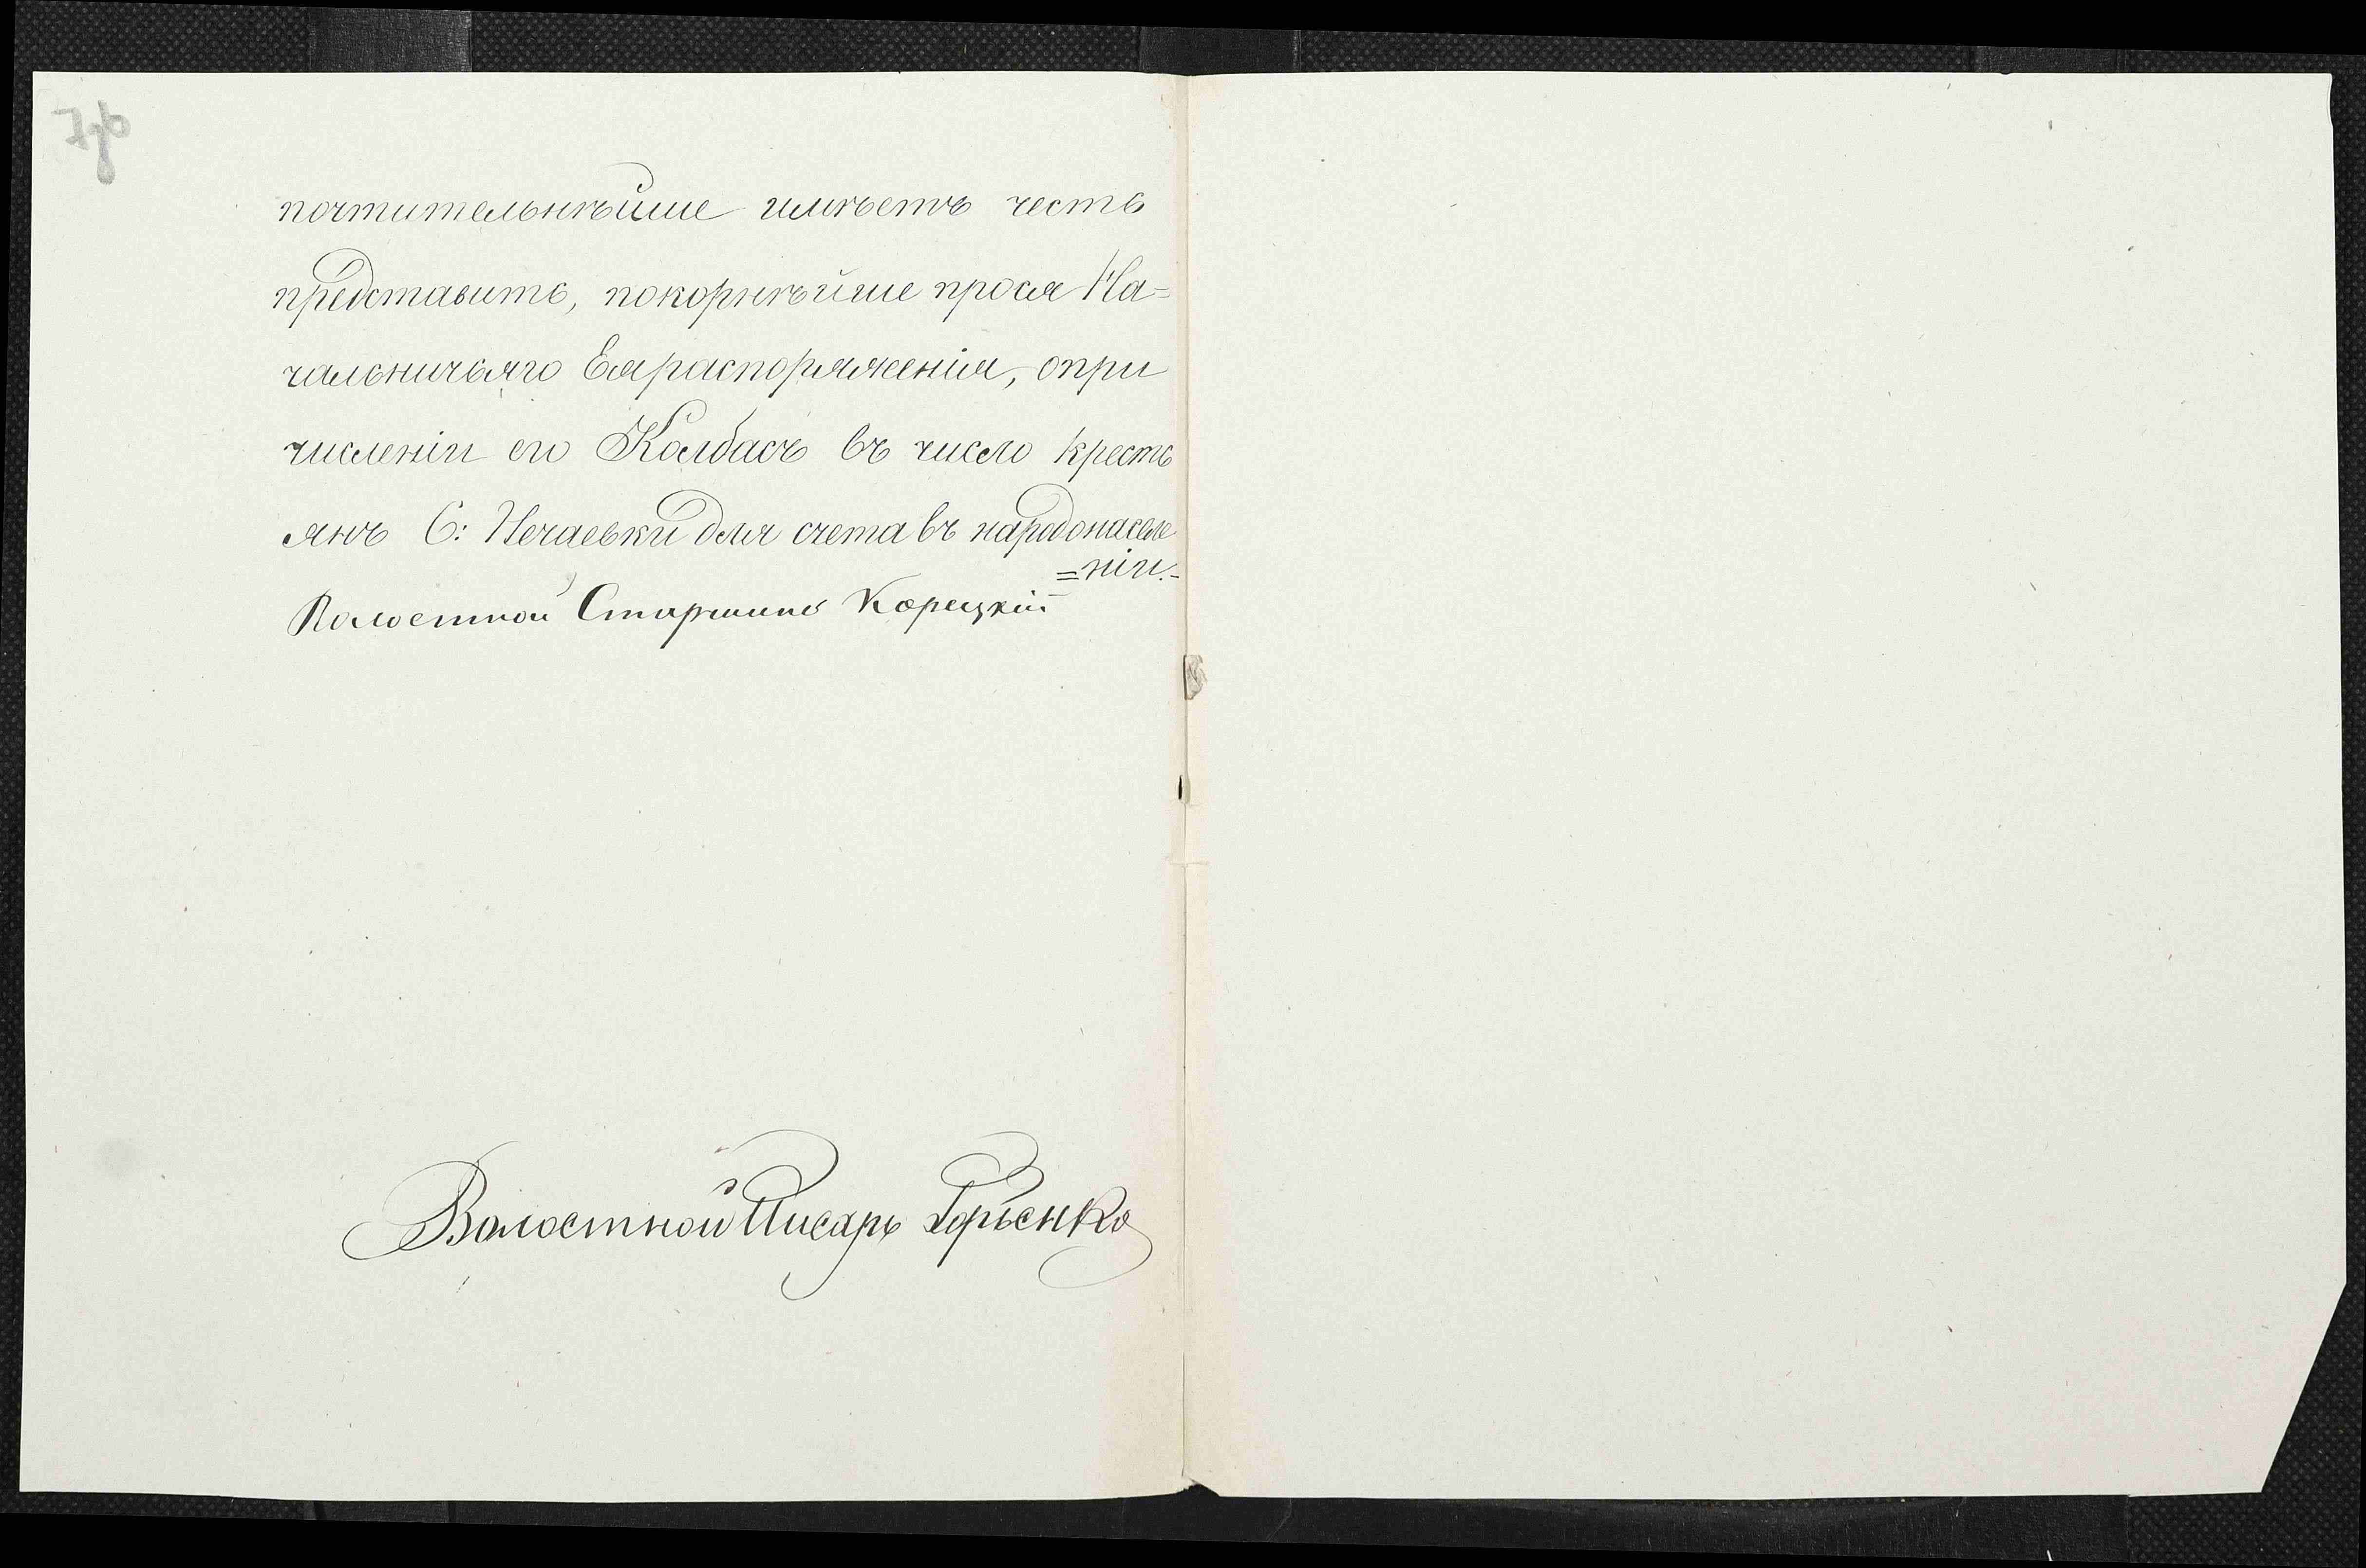 7об
почтительнѣйше имѣетъ честь
представить, покорнѣйше прося На=
чальничьяго Ея распоряженія, опри
численіи его Колбасъ въ число кресть
янъ С: Нечаевки для счета въ народонаселе
=ніи.-
Волостной Старшина Корецкій
Волостной Писарь